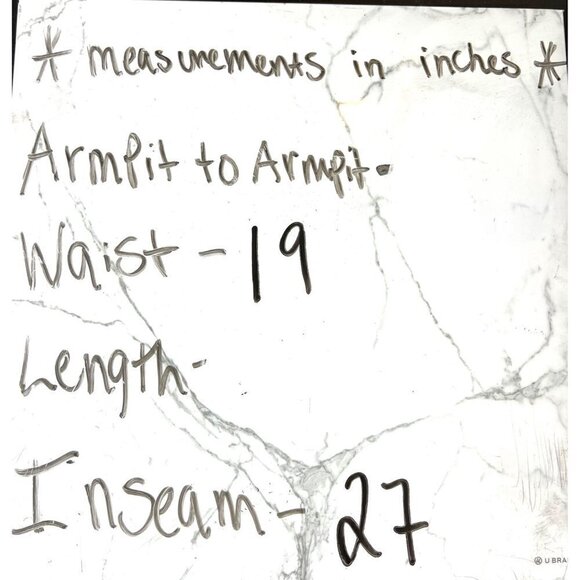 * measurements in inches *
ArmPit to Armpit-
Waist - 19
Length-
Inseam - 27
U BRA